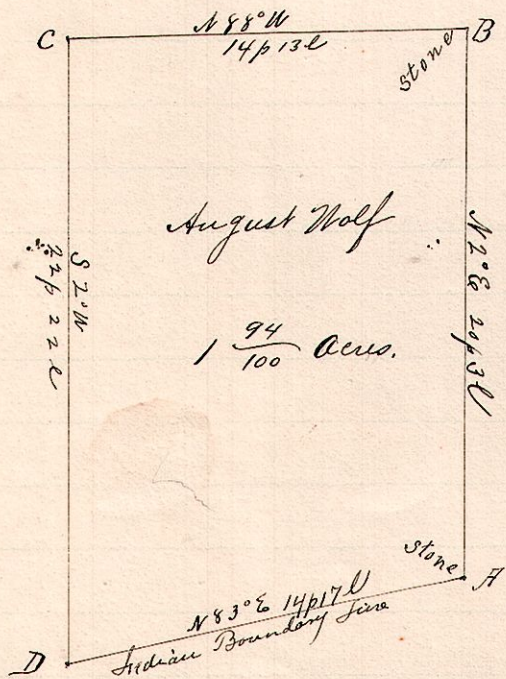 C
N 88° W
14p 13l
B
Stone
August Wolf
S 2° W
22p 22l
N 2° E 20p 3l
1 94/100 Acres.
Stone
A
N 83° E 14p 17l
Indian Boundary Line
D